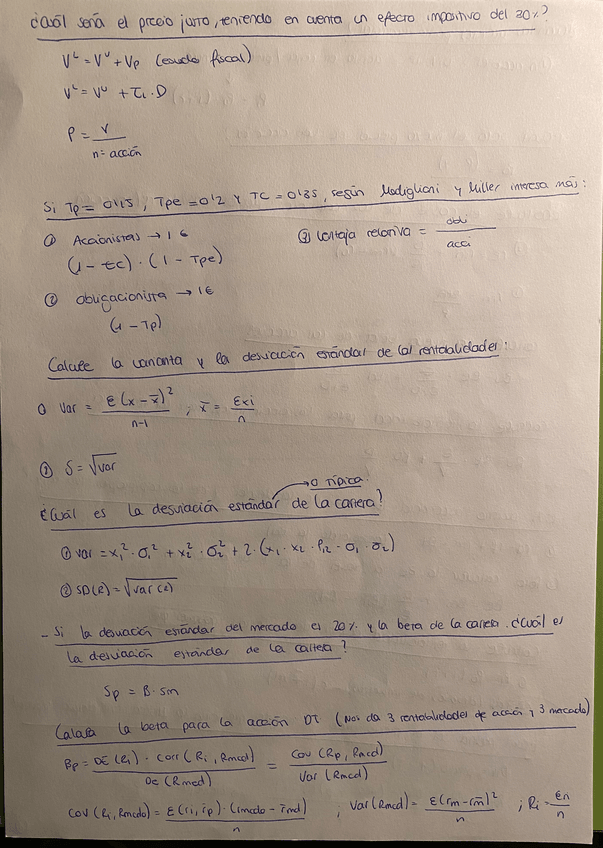 ¿Cuál sería el precio justo, teniendo en cuenta un efecto impositivo del 20%?
V^L = V^U + V_P (escudo fiscal)
V^L = V^U + τ_1 · D
P = V / n = acción
Si Tp = 0'15, Tpe = 0'2 y TC = 0'35, según Modigliani y Miller interesa más:
① Accionistas → 1€
(1 - tc) · (1 - Tpe)
② obligacionista → 1€
(1 - Tp)
③ Ventaja relativa = obli / acci
Calcule la varianza y la desviación estándar de las rentabilidades:
① Var = Σ(x - x̄)² / n-1 ; x̄ = Σxi / n
② S = √var
¿Cuál es la desviación estándar de la cartera?
→ o típica.
① var = x₁² · σ₁² + x₂² · σ₂² + 2 · (x₁ · x₂ · ρ₁₂ · σ₁ · σ₂)
② SD(R) = √var(R)
- Si la desviación estándar del mercado es 20% y la beta de la cartera. ¿Cuál es
la desviación estándar de la cartera?
Sp = B · sm
Calcula la beta para la acción DT (Nos da 3 rentabilidades de acción y 3 mercado)
Bp = DE(Ri) · Corr(Ri, Rmcd) / DE(Rmed) = Cov(Rp, Rmcd) / Var(Rmcd)
Cov(Ri, Rmcdo) = Σ(ri, r̄p) · (rmcdo - r̄md) / n ; Var(Rmcd) = Σ(rm - r̄m)² / n ; R̄i = Σri / n